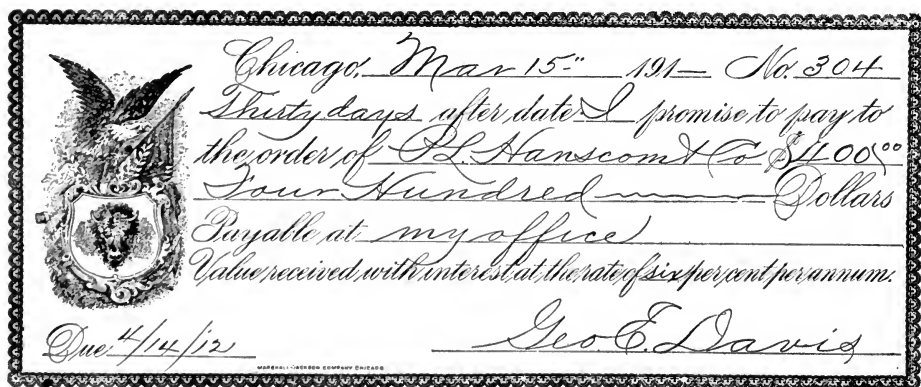 Chicago, Mar 15" 191— No. 304
Thirty days after date I promise to pay to
the order of P.L. Hanscom & Co $400.00
Four Hundred Dollars
Payable at my office
Value received with interest at the rate of six per cent per annum.
Due 4/14/12 Geo. E. Davis
COMPANY CHICAGO